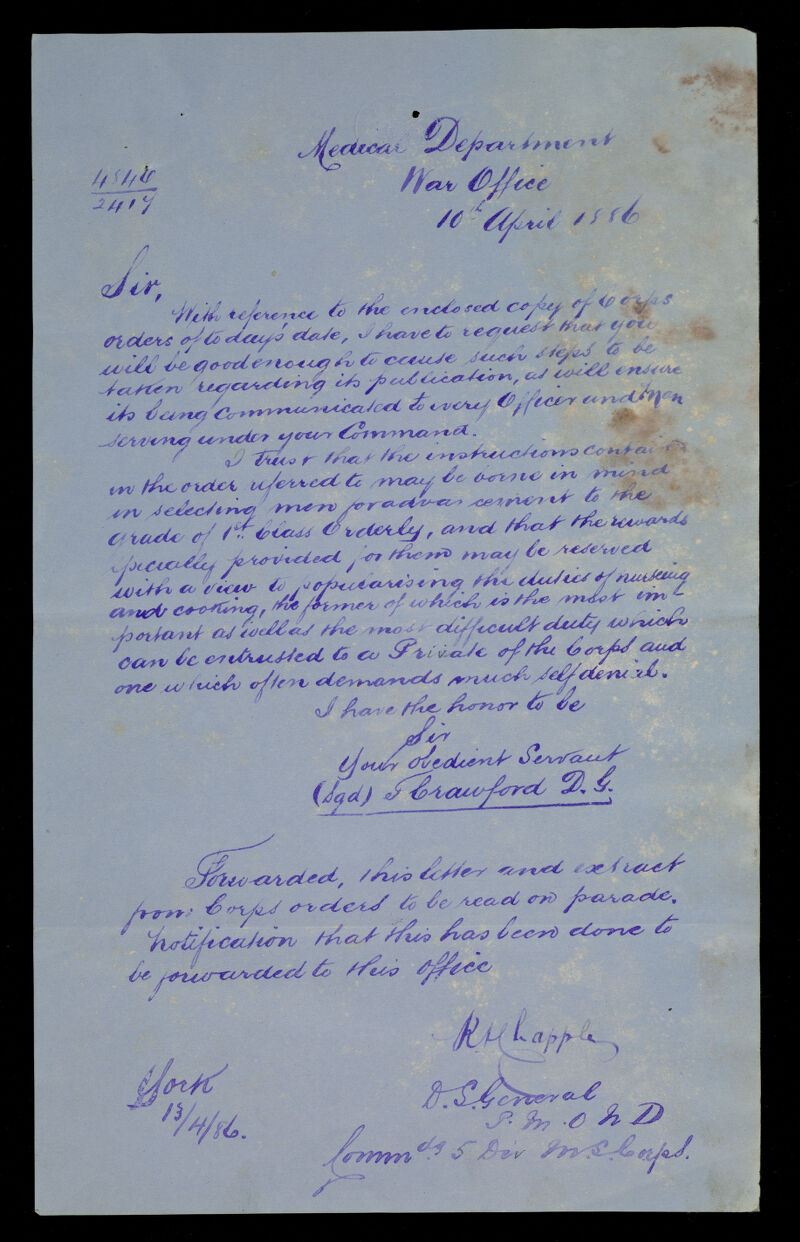 Medical Department
War Office
10th April 1886
4846
2417
Sir,
With reference to the enclosed copy of Corps
orders of to day's date, I have to request that you
will be good enough to cause such steps to be
taken regarding its publication, as will ensure
its being communicated to every Officer and Man
serving under your Command.
I trust that the instructions contai
in the order referred to may be borne in mind
in selecting men for advancement to the
grade of 1st Class Orderly, and that the rewards
specially provided for them may be reserved
with a view to popularising the duties of nursing
and cooking, the former of which is the most im-
portant as well as the most difficult duty which
can be entrusted to a Private of the Corps and
one which often demands much self denial.
I have the honor to be
Sir
Your obedient Servant
(Sgd) T Crawford D. G.
Forwarded, this letter and extract
from Corps orders to be read on parade.
Notification that this has been done to
be forwarded to this Office
D. S. General
P. M. O N D
Commdg 5 Div M. S. Corps.
York
13/4/86.